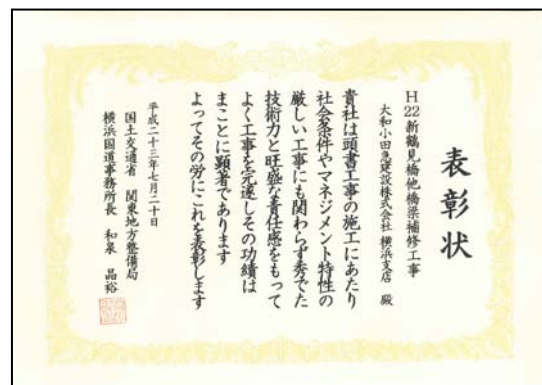 表彰状
H22新鶴見橋他橋梁補修工事
大和小田急建設株式会社 横浜支店 殿
貴社は頭書工事の施工にあたり
社会条件やマネジメント特性の
厳しい工事にも関わらず秀でた
技術力と旺盛な責任感をもって
よく工事を完遂しその功績は
まことに顕著であります
よってその労にこれを表彰します
平成二十三年七月二十日
国土交通省 関東地方整備局
横浜国道事務所長 和泉 晶裕